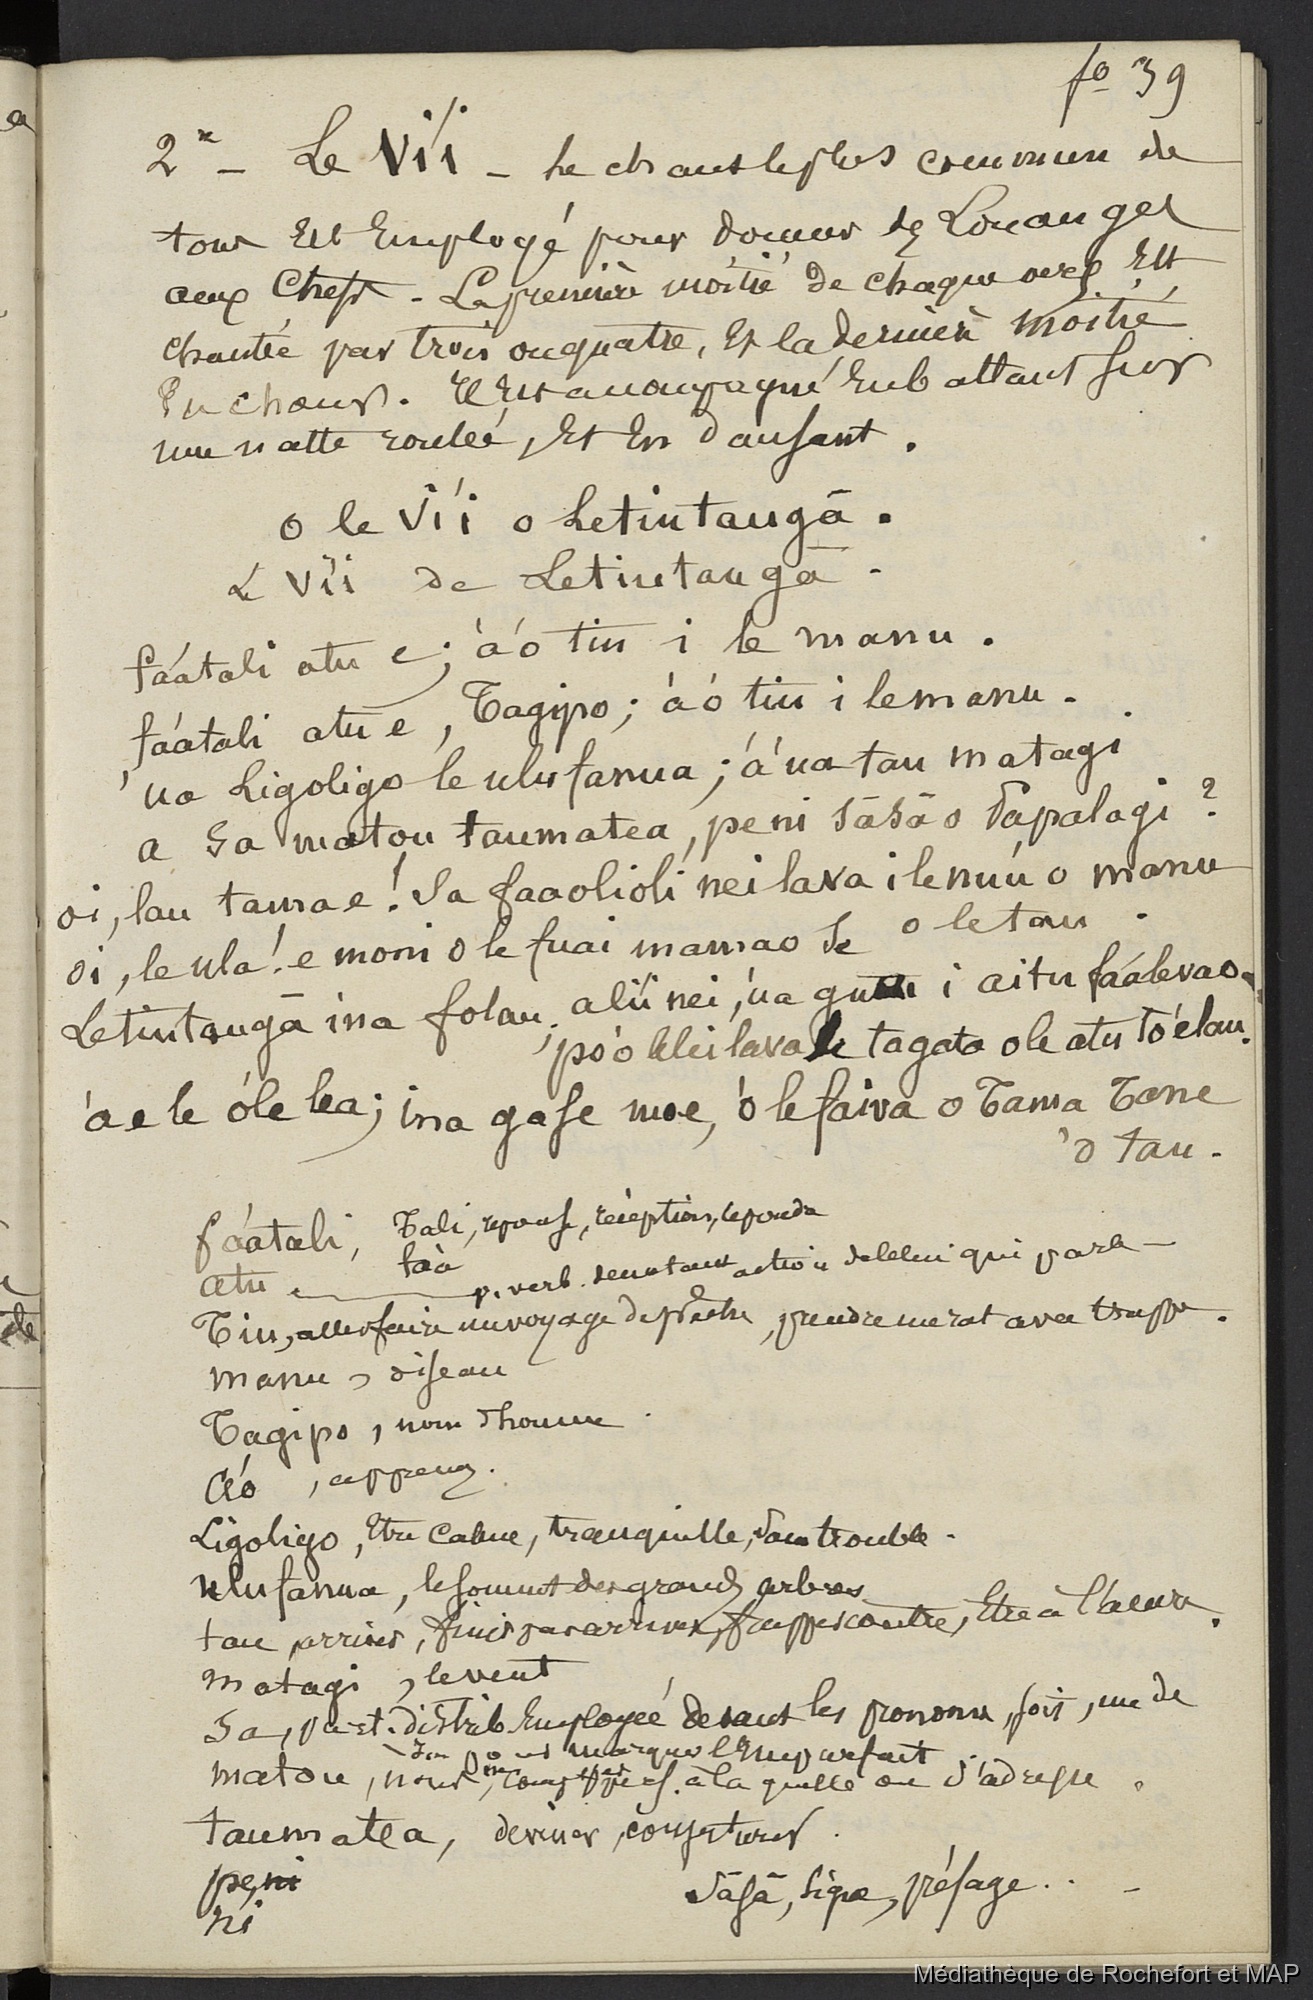 fo 39
2° - Le Vi'i - Le chant le plus commun de
tous Est Employé pour donner des Louanges
aux Chefs. La première moitié de chaque vers Est
chantée par trois ou quatre, Et la dernière moitié
En chœur. Il Est accompagné En battant sur
une natte roulée, Et En dansant.
o le Vi'i o Letiutaugā.
Le Vi'i de Letiutaugā.
fáatali atu e; 'a'o tiu i le manu.
fáatali atu e, Tagipo; 'a'o tiu i le manu.
'ua Ligoligo le ulufanua; 'a'ua tau matagi
a sa matou taumatea, pe ni sāsā o Papalagi?
oi, lau tama e! Sa faaolioli nei lava i le nuú o manu
oi, le ula! e moni o le fuai mamao se o le tau.
Letiutaugā ina folau; alii nei, 'ua i aitu fáalevao.
po'o lelei lava le tagata o le atu to'elau.
'a e le óle lea; ina gase moe, 'o le faiva o Tama Tane
'o tau.
fáatali, Tali, reponse, réception, repondre
faa
atu p. verb. denotant action de celui qui parle
Tiu, aller faire un voyage de pêche, prendre un rat avec trappe.
manu, oiseau
Tagipo, nom d'homme
Aó, apprenez.
Ligoligo, Etre calme, tranquille, sans trouble.
ulufanua, le sommet des grands arbres
tau arriver, finir par arriver, frapper contre, Etre à l'ancre.
matagi, le vent
Sa, part. distrib Employée devant les pronoms, fois, un de
pour marquer l'Imparfait
matou, nous, à la quelle on s'adresse.
taumatea, deviner, conjecturer.
pe, ni
ni
sāsā, signe, présage..
Médiathèque de Rochefort et MAP